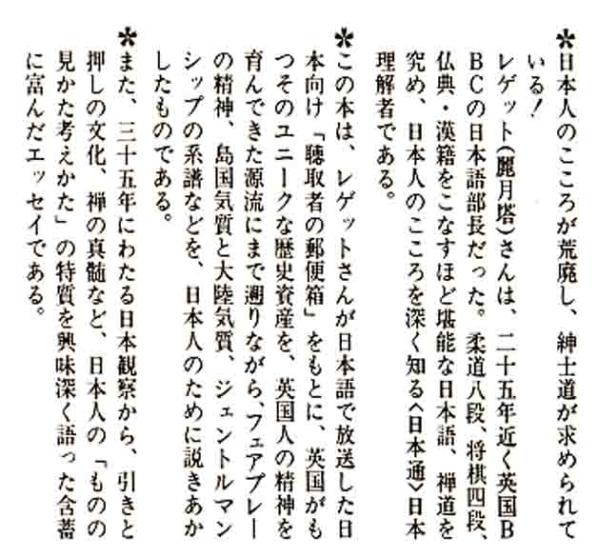 ＊日本人のこころが荒廃し、紳士道が求められて
いる！
レゲット(麗月塔)さんは、二十五年近く英国B
BCの日本語部長だった。柔道八段、将棋四段、
仏典・漢籍をこなすほど堪能な日本語、禅道を
究め、日本人のこころを深く知る〈日本通〉日本
理解者である。
＊この本は、レゲットさんが日本語で放送した日
本向け「聴取者の郵便箱」をもとに、英国がも
つそのユニークな歴史資産を、英国人の精神を
育んできた源流にまで遡りながら、フェアプレー
の精神、島国気質と大陸気質、ジェントルマン
シップの系譜などを、日本人のために説きあか
したものである。
＊また、三十五年にわたる日本観察から、引きと
押しの文化、禅の真髄など、日本人の「ものの
見かた考えかた」の特質を興味深く語った含蓄
に富んだエッセイである。